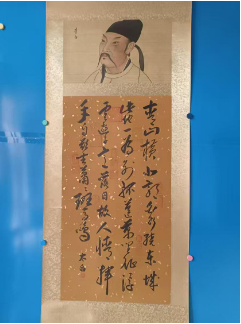 青山横北郭白水繞東城
此地一為別孤蓬萬里征浮
雲遊子意落日故人情揮
手自茲去蕭蕭班馬鳴 太白